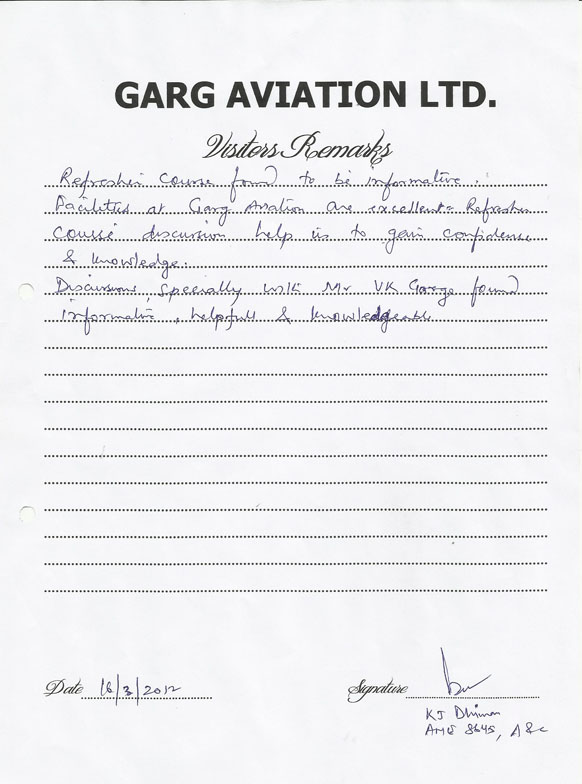 GARG AVIATION LTD.
Visitors Remarks
Refresher Course found to be informative.
Facilities at Garg Aviation are excellent. Refresher
course discussion help us to gain confidence
& knowledge.
Discussions, specially with Mr VK Garge found
informative, helpfull & knowledgeable
Date 16/3/2012
Signature
KJ Dhiman
AME 8645, A&C